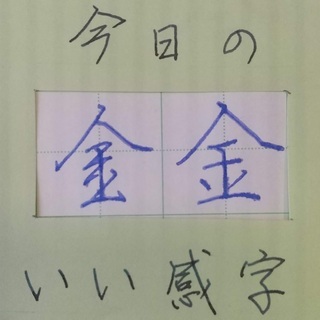 今日の
金金
いい感字